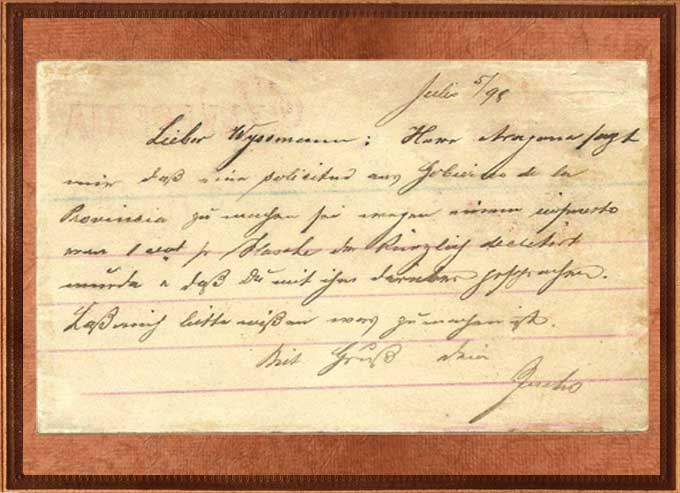 Julio 5/98
Lieber Wyssmann: Herr Aragone sagt
mir daß eine solicitud ans Gobierno de la
Provincia zu machen sei wegen einem impuesto
von 1 cent pr Flasche der kürzlich decretirt
wurde & daß Du mit ihm darüber gesprochen.
Laß mich bitte wißen was zu machen ist.
Mit Gruß Dein